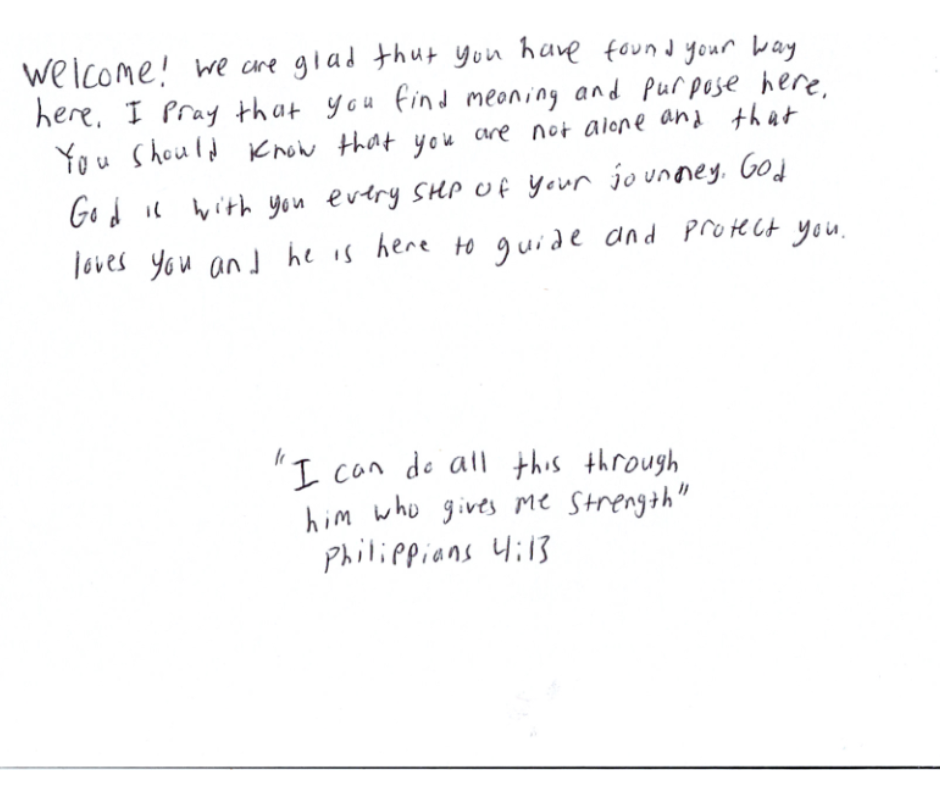 Welcome! We are glad that you have found your way
here. I Pray that you find meaning and purpose here.
You should know that you are not alone and that
God is with you every step of your jounney. God
loves you and he is here to guide and protect you.
"I can do all this through
him who gives me strength"
Philippians 4:13